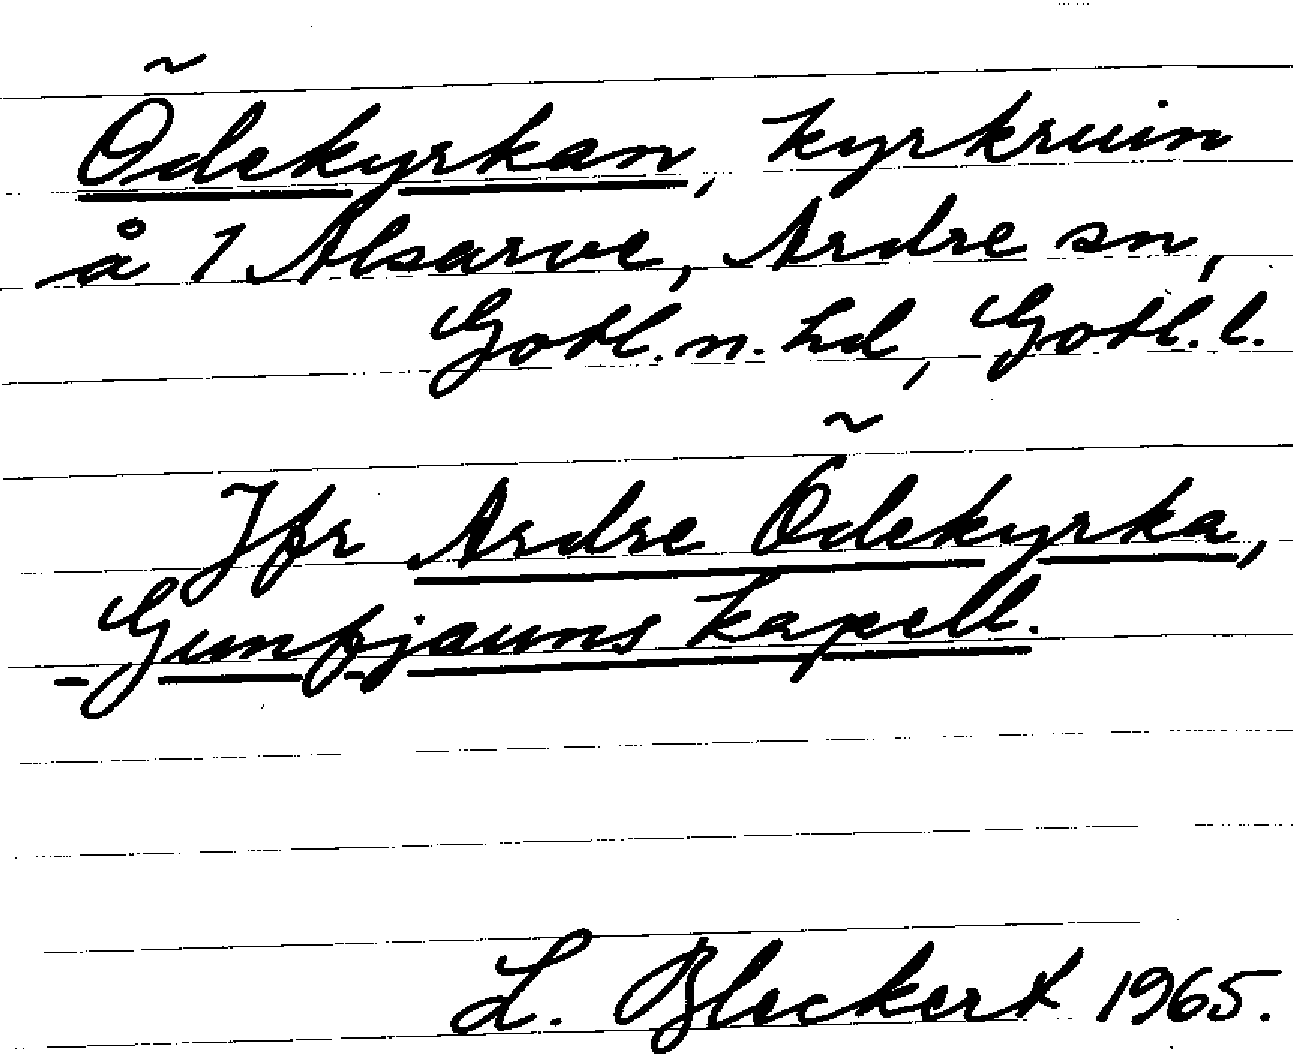 Ödekyrkan, kyrkruin
å 1 Alsarve, Ardre sn,
Gotl. n. hd, Gotl. l.
Jfr Ardre Ödekyrka,
Gunfjauns kapell.
L. Bleckert 1965.